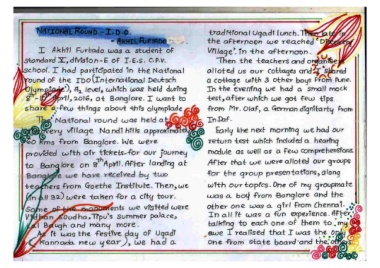 NATIONAL ROUND - I.D.O
- AKHIL FURTADO
I Akhil Furtado was a student of
standard IX, division-E of I.E.S. C.P.V.
school. I had participated in the National
round of the IDO (International Deutsch
Olympiade), A2 level, which was held during
8th- April, 2016, at Banglore. I want to
share a few things about this olympiade.
The National round was held at
very village Nandi Hills approximately
60 kms from Banglore. We were
provided with air tickets for our journey
to Banglore on 8th April. After landing at
Banglore we have received by two
teachers from Goethe Institute. Then, we
(in all 32) were taken for a city tour.
Some of the monuments we visited were
Vidhan Soudha, Tipu's summer palace,
Lal Bagh and many more.
As it was the festive day of Ugadi
(Kannada new year), we had a
traditional Ugadi lunch. Then late in
the afternoon we reached "Discovery
Village". In the afternoon.
Then the teachers and
alloted us our cottages and I shared
a cottage with 3 other boys from Pune.
In the evening we had a small mock
test, after which we got few tips
from Mr. Olaf, a German dignitary from
InDaf.
Early the next morning we had our
return test which included a hearing
module as well as a few comprehensions.
After that we were alloted our groups
for the group presentations, along
with our topics. One of my groupmate
was a boy from Banglore and the
other one was a girl from Chennai.
In all it was a fun experience. After
talking to each one of them to, my
awe I realised that I was the only
one from state board and the others